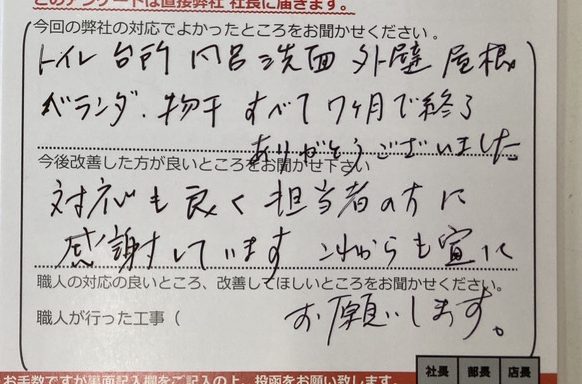 このアンケートは直接弊社 社長に届きます。
今回の弊社の対応でよかったところをお聞かせください。
トイレ 台所 風呂 洗面 外壁 屋根
ベランダ.物干 すべて 7ヶ月で終了
ありがとうございました
今後改善した方が良いところをお聞かせ下さい
対応も良く 担当者の方に
感謝しています これからも宜しく
職人の対応の良いところ、改善してほしいところをお聞かせください。
職人が行った工事（
お願いします。
社長 部長 店長
お手数ですが裏面記入欄をご記入の上、投函をお願い致します。